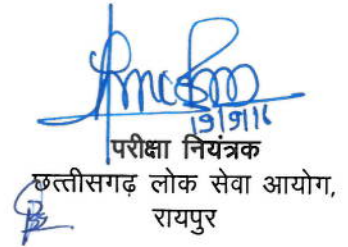 19/9/16
परीक्षा नियंत्रक
छत्तीसगढ़ लोक सेवा आयोग,
रायपुर